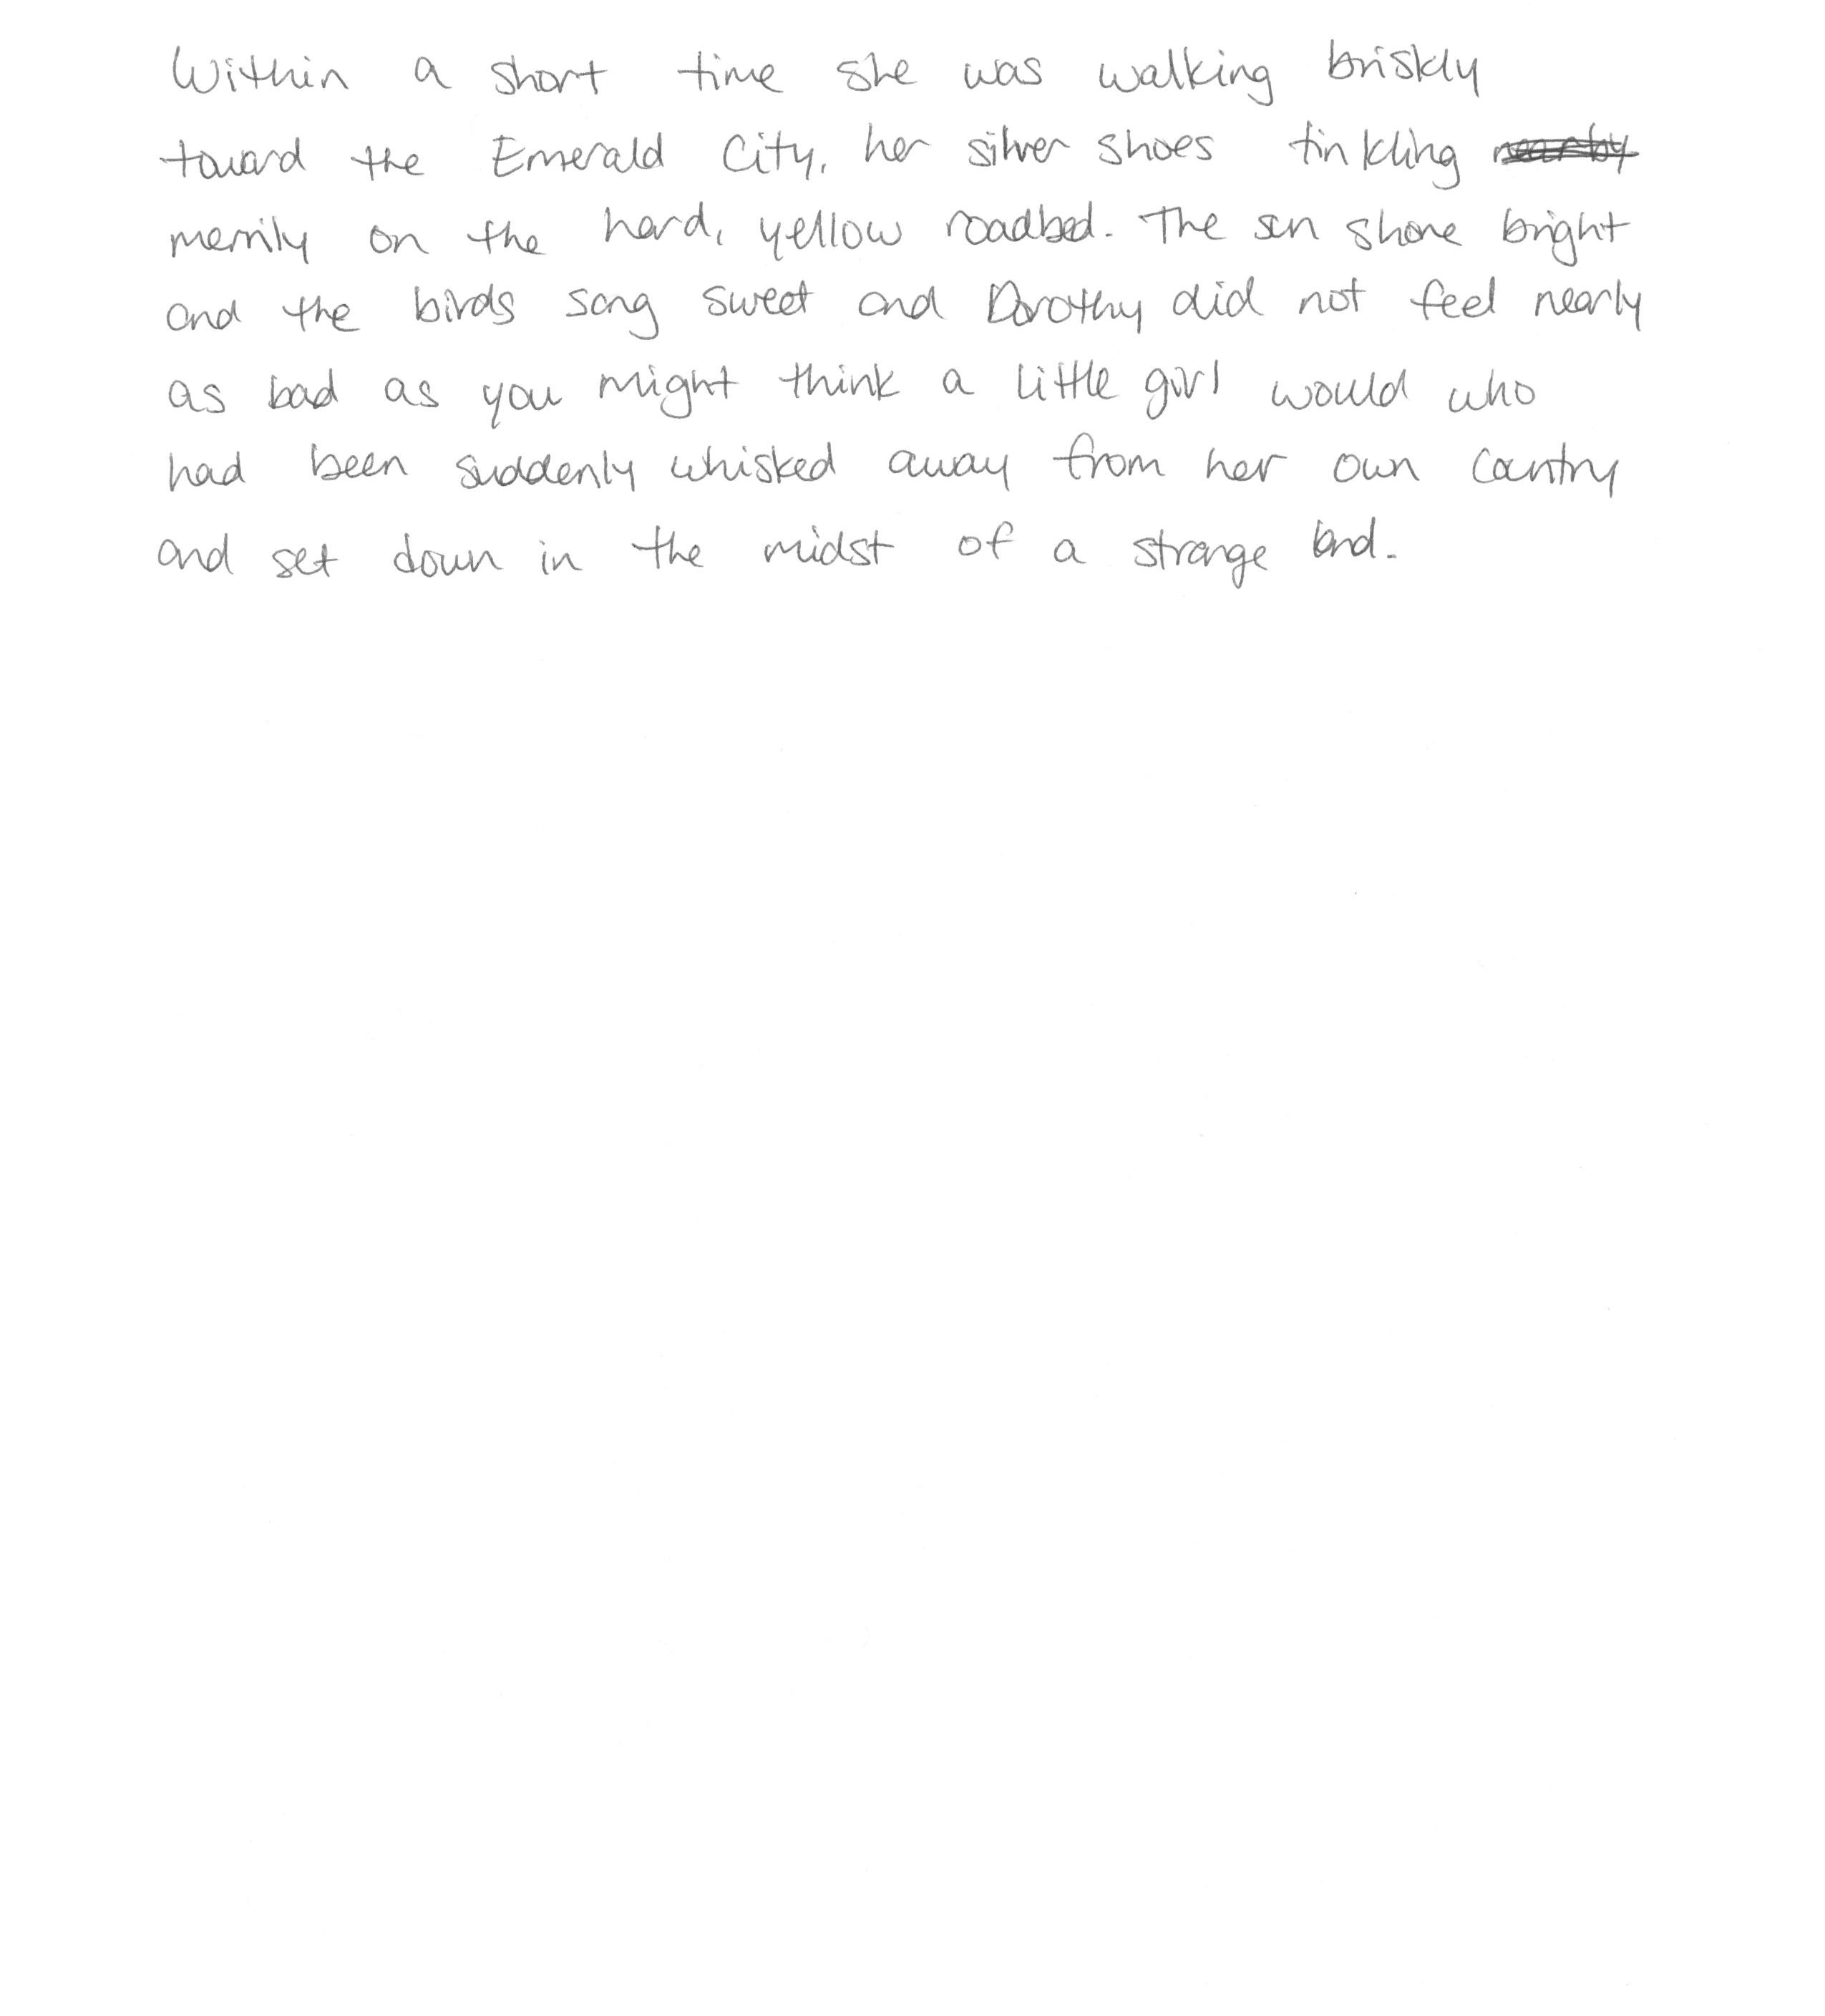 Within a short time she was walking briskly
toward the Emerald City, her silver shoes tinkling
merrily on the hard, yellow roadbed. The sun shone bright
and the birds sang sweet and Dorothy did not feel nearly
as bad as you might think a little girl would who
had been suddenly whisked away from her own country
and set down in the midst of a strange land.